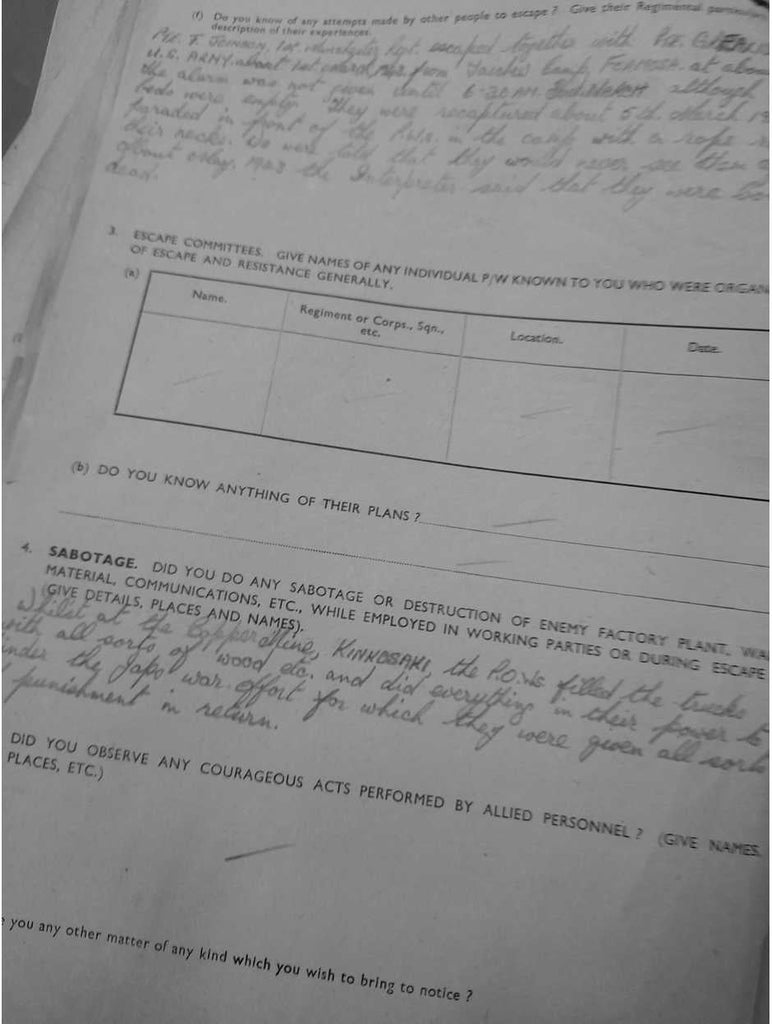 (f) Do you know of any attempts made by other people to escape? Give their Regimental
description of their experiences.
Pte. F. Johnson, 1st. Manchester Regt. escaped together with Pte.
U.S. ARMY. about 1st March, from Camp, FORMOSA. at
the alarm was not given until 6-30 A.M. although
beds were empty. They were recaptured about 5th. March 19
paraded in front of the P.W.s. in the camp with a rope
their necks. We were told that they would never see them
about May. 1943 the Interpreter said that they were
dead.
3. ESCAPE COMMITTEES. GIVE NAMES OF ANY INDIVIDUAL P/W KNOWN TO YOU WHO WERE ORGAN
OF ESCAPE AND RESISTANCE GENERALLY.
(a)
Name. Regiment or Corps., Sqn., etc. Location. Date.
(b) DO YOU KNOW ANYTHING OF THEIR PLANS?
4. SABOTAGE. DID YOU DO ANY SABOTAGE OR DESTRUCTION OF ENEMY FACTORY PLANT, WA
MATERIAL, COMMUNICATIONS, ETC., WHILE EMPLOYED IN WORKING PARTIES OR DURING ESCAPE
(GIVE DETAILS, PLACES AND NAMES).
Whilst at the Copper Mine, KINKOSAKI, the P.O.Ws filled the trucks
with all sorts of wood etc. and did everything in their power to
the Japs war effort for which they were given all sorts
punishment in return.
DID YOU OBSERVE ANY COURAGEOUS ACTS PERFORMED BY ALLIED PERSONNEL? (GIVE NAMES,
PLACES, ETC.)
you any other matter of any kind which you wish to bring to notice?